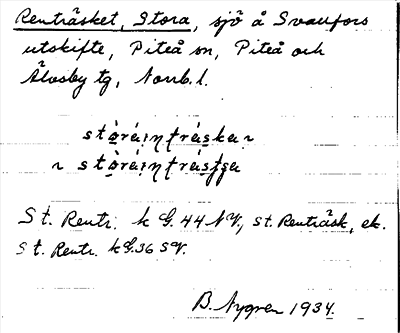 Renträsket, Stora, sjö å Svanfors
utskifte, Piteå sn, Piteå och
Älvsby tg, Norrb. l.
stòráinträskan
n stòráinträstʃa
St. Rentr. k G. 44 NV, St. Renträsk, ek.
St. Rentr. k G. 36 SV.
B. Nygren 1934.